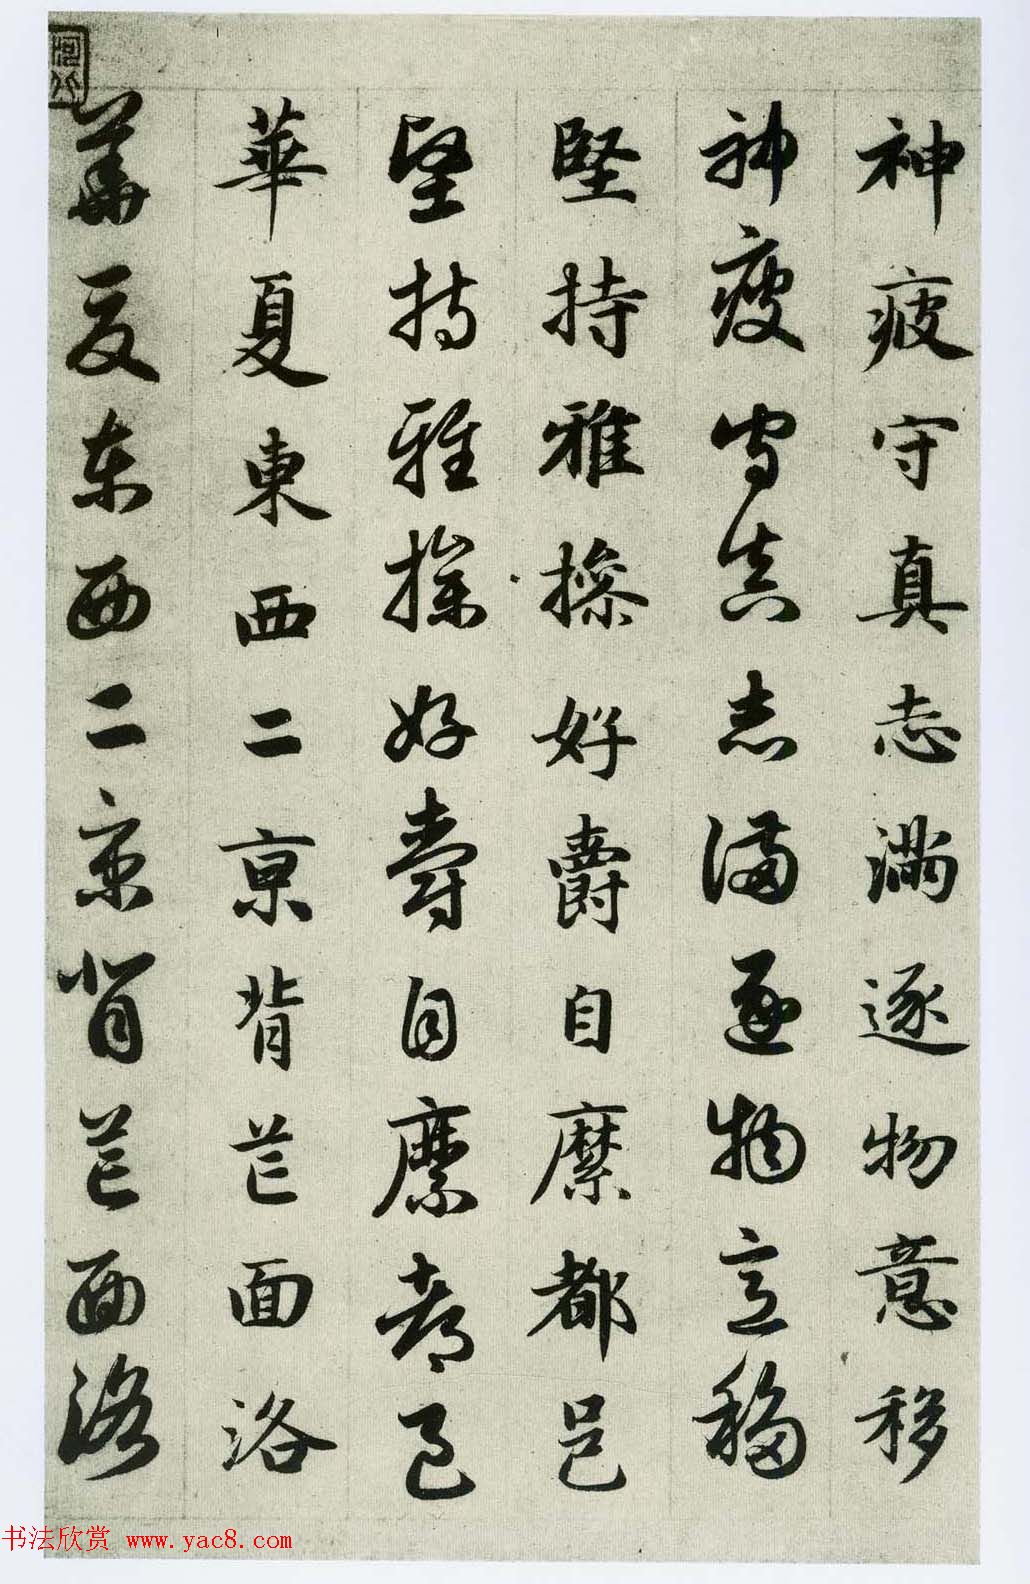 神疲守真志満逐物意移
神疲守真志満逐物意移
堅持雅操好爵自縻都邑
堅持雅操好爵自縻都邑
華夏東西二京背芒面洛
華夏东西二京背芒面洛
书法欣赏 www.yac8.com